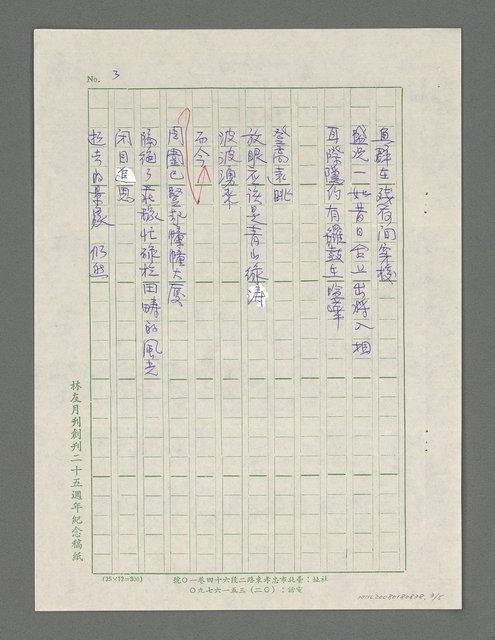 No. 3
魚群在殘荷間穿梭
盛況一如昔日台上出將入相
耳際隱約有鑼鼓在喧嘩
登高遠眺
放眼應該是青山綠濤
波波湧來
而今
周圍已豎起幢幢大廈
隔絕了莊稼忙碌於田疇的風光
閉目追思
故去的景象 仍然
林友月刊創刊二十五週年紀念稿紙
(25×12=300)
社址：臺北市忠孝東路二段六十四巷一〇號
電話：(〇二)三五一六七九〇